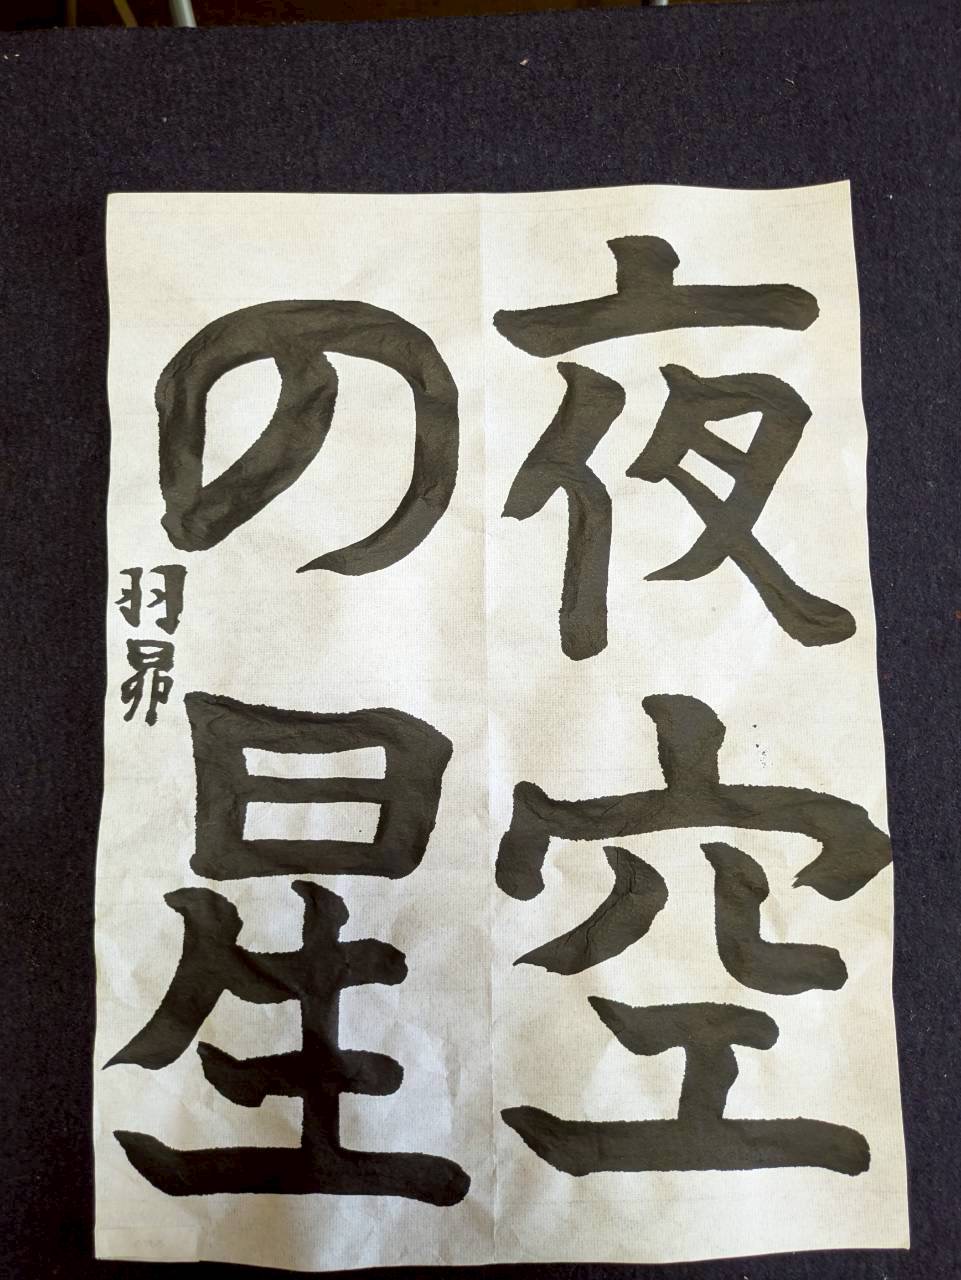 夜空
の星
羽昴